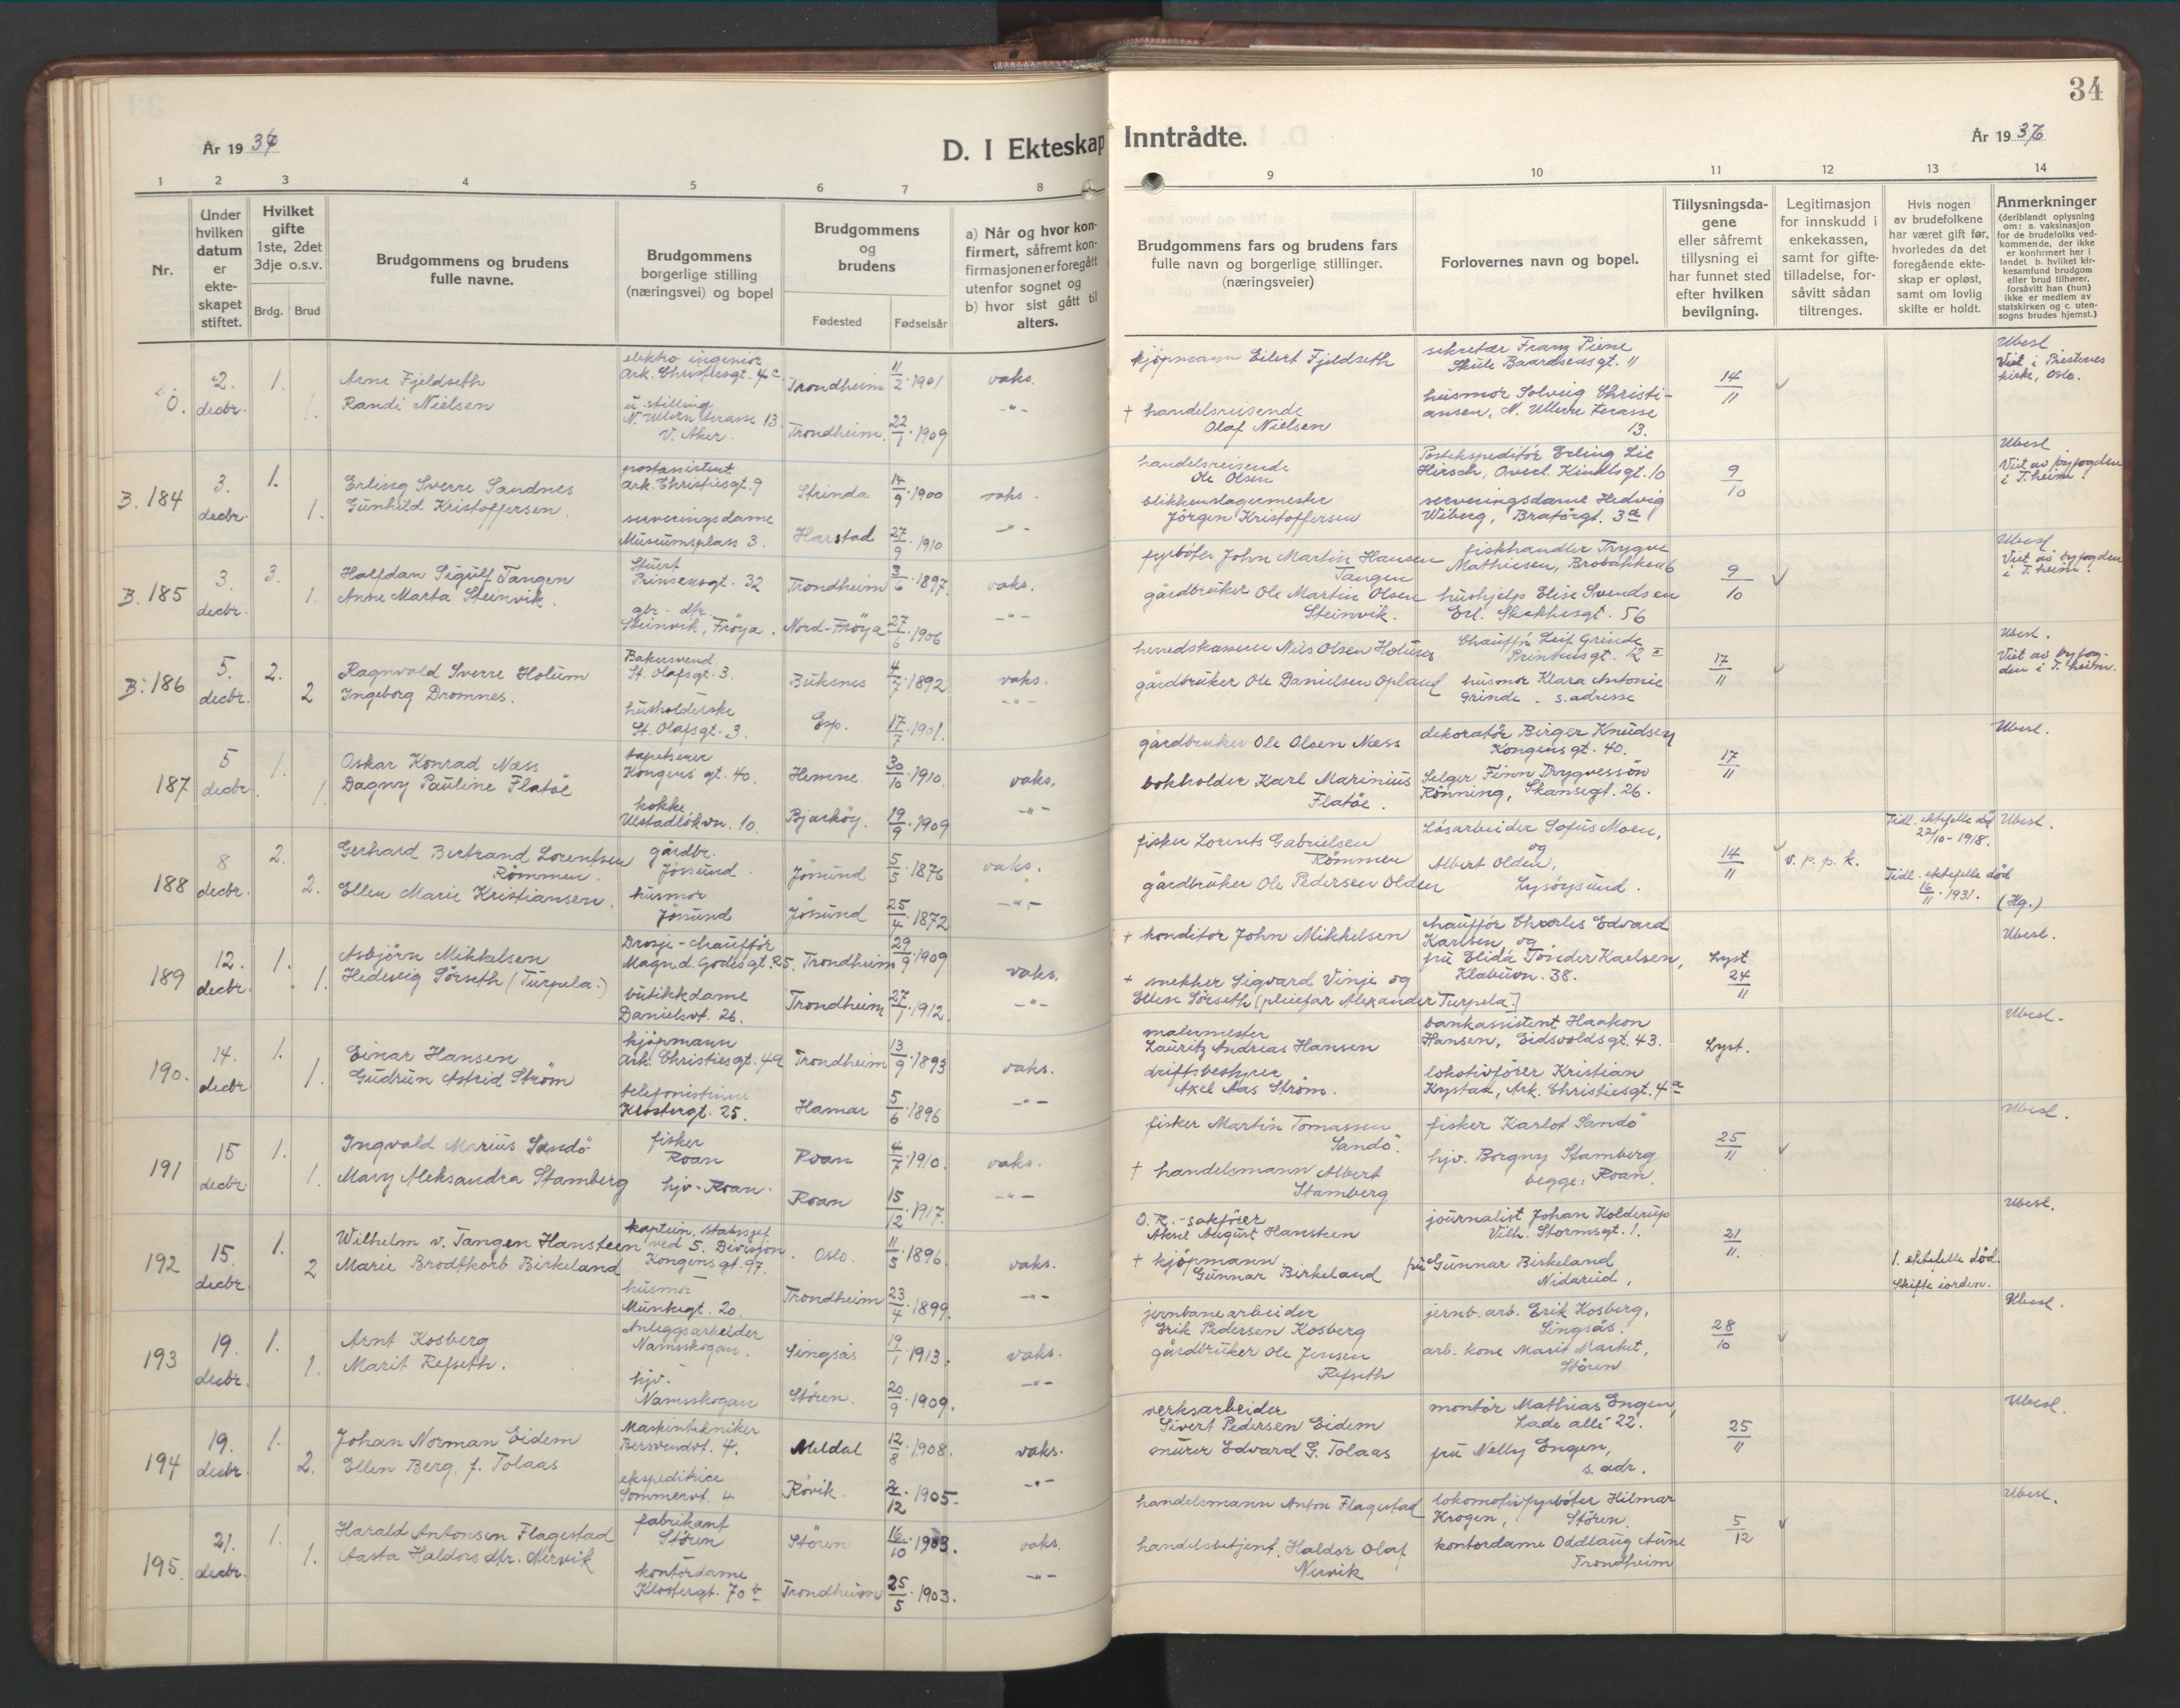 34
År 1936
D. I Ekteskap Inntrådte.
År 1936
1 2 3 4 5 6 7 8 9 10 11 12 13 14
Nr.
Under hvilken datum er ekte-skapet stiftet.
Hvilket gifte 1ste, 2det 3dje o.s.v.
Brdg. Brud
Brudgommens og brudens fulle navne.
Brudgommens borgerlige stilling (næringsvei) og bopel
Brudgommens og brudens
Fødested Fødselsår
a) Når og hvor kon-firmert, såfremt kon-firmasjonen er foregått utenfor sognet og b) hvor sist gått til alters.
Brudgommens fars og brudens fars fulle navn og borgerlige stillinger. (næringsveier)
Forlovernes navn og bopel.
Tillysningsda-gene eller såfremt tillysning ei har funnet sted efter hvilken bevilgning.
Legitimasjon for innskudd i enkekassen, samt for gifte-tilladelse, for-såvitt sådan tiltrenges.
Hvis nogen av brudefolkene har været gift før, hvorledes da det foregående ekte-skap er opløst, samt om lovlig skifte er holdt.
Anmerkninger (deriblandt oplysning om: a. vaksinasjon for de brudefolks ved-kommende, der ikke er konfirmert her i landet. b. hvilket kir-kesamfund brudgom eller brud tilhører, forsåvitt han (hun) ikke er medlem av statskirken og c. uten-sogns brudes hjemst.)
0. 2. decbr. 1. 1.
Arne Fjeldseth
Randi Nielsen
elektro ingeniør
Ark. Christiesgt. 4c Trondheim 11/2 1901 vaks.
u. stilling
N. Ullern terasse 13.
V. Aker. Trondheim. 22/1 1909 -"-
kjøpmann Eilert Fjeldseth
+ handelsreisende
Olaf Nielsen
sekretær Franz Piene
Skule Baardsensgt. 11
husmor Solveig Christi-
ansen, N. Ullern terasse
13.
14/11
Ubesl
Viet i Prestenes
kirke, Oslo.
B. 184 3. decbr. 1. 1.
Erling Sverre Sandnes
Gunhild Kristoffersen.
postassistent
Ark. Christiesgt. 9 Strinda 14/9 1900 vaks.
serveringsdame
Museumsplass 3. Harstad 27/9 1910 -"-
handelsreisende
Ole Olsen
blikkenslagermester
Jörgen Kristoffersen
Postekspeditör Erling Lie
Hirsch, Overl. Kindtsgt. 10
serveringsdame Hedvig
Wiberg, Bratörgt. 3a
9/10
Ubesl
Viet av byfogden
i T.heim.
B. 185 3. decbr. 3. 1.
Halfdan Sigulf Tangen
Anne Marta Steinvik.
Stuert
Prinsensgt. 32 Trondheim 3/6 1897. vaks.
gbr. dtr.
Steinvik, Fröya. Nord-Fröya 27/6 1906 -"-
fyrböter John Martin Hansen
Tangen
gårdbruker Ole Martin Olsen
Steinvik.
fiskhandler Trygve
Mathiesen, Brobakken 6
hushjelp Elise Svendsen
Erl. Skakkesgt. 56
9/10
Ubesl
Viet av byfogden
i T.heim.
B. 186 5. decbr. 2. 2
Ragnvald Sverre Holum
Ingeborg Dromnes.
Bakersvend
St. Olafsgt. 3. Buksnes 4/7 1892 vaks.
husholderske
St. Olafsgt. 3. Esp. 17/7 1901. -"-
herredskasserer Nils Olsen Holum
gårdbruker Ole Danielsen Opland
Chauffør Leif Grinde
Prinsensgt. 12 II
husmor Klara Antonie
Grinde - s. adresse
17/11
Ubesl.
Viet av byfog-
den i T.heim.
187 5 decbr. 1. 1.
Oskar Konrad Næss
Dagny Pauline Flatöe
tapetserer
Kongens gt. 40. Hemne 30/10 1910. vaks.
kokke
Ulstadlökvn. 10. Bjarköy. 19/9 1909 -"-
gårdbruker Ole Olsen Næss
bokholder Karl Marinius
Flatöe.
dekoratör Birger Knudsen
Kongens gt. 40.
Selger Finn Trygvessön
Rönning, Skansegt. 26.
17/11
Ubesl.
188 8 decbr. 2. 2.
Gerhard Bertrand Lorentsen
Römmen.
Ellen Marie Kristiansen.
gårdbr.
Jössund. Jössund 5/5 1876 vaks.
husmor
Jössund Jössund 25/4 1872 -"-
fisker Lorents Gabrielsen
Römmen
gårdbruker Ole Pedersen Olden
Lösarbeider Sofus Moen,
og
Albert Olden,
Lysöysund.
14/11 v. p. p. k.
Tidl. ektefelle död
22/10-1918.
Tidl. ektefelle död
16/11 1931.
Ubesl.
(Hg.)
189 12. decbr. 1. 1.
Asbjörn Mikkalsen
Hedevig Sörseth (Turpela.)
Drosje-chauffør
Magn. d. Godesgt. 25. Trondheim 29/9 1909 vaks.
butikkdame
Danielsvt. 26. Trondheim 27/1 1912. -"-
+ konditor John Mikkelsen
+ snekker Sigvard Vinje og
Ellen Sörseth (pleiefar Alexander Turpela.)
chauffør Charles Edvard
Karlsen og
fru Elida Tönder Karlsen,
Klæbuvn. 38.
Lyst
24/11
Ubesl.
190. 14. decbr. 1. 1.
Einar Hansen
Gudrun Astrid Ström
kjøpmann
Ark. Christiesgt. 4a Trondheim 13/9 1893 vaks.
telefonistinne
Klostergt. 25. Hamar 5/6 1896 -"-
malermester
Lauritz Andreas Hansen
driftsbestyrer
Axel Aas Ström.
bankassistent Haakon
Hansen, Eidsvoldsgt. 43.
lokotivförer Kristian
Kystad, Ark. Christiesgt. 4a
Lyst.
Ubesl.
191 15 decbr 1. 1.
Ingvald Marius Sandö
Mary Aleksandra Stamberg
fisker
Roan Roan 4/7 1910. vaks.
hjv. Roan. Roan 15/12 1917. -"-
fisker Martin Tomassen
Sandö.
+ handelsmann Albert
Stamberg
fisker Karlot Sandö
hjv. Borgny Stamberg
begge: Roan.
25/11
Ubesl.
192 15. decbr. 1. 2
Wilhelm v. Tangen Hansteen
Marie Brodtkorb Birkeland
kaptein, stabssjef
ved 5. Divisjon.
Kongens gt. 97. Oslo. 11/5 1896. vaks.
husmor
Munkegt. 20. Trondheim 23/4 1899. -"-
O.R.-sakförer
Aksel August Hansteen
+ kjøpmann
Gunnar Birkeland
journalist Johan Kolderup
Vilh. Stormsgt. 1.
fru Gunnar Birkeland
Nidareid,
21/11.
1. ektefelle död.
Skifte iorden.
Ubesl.
193 19. decbr. 1. 1.
Arnt Kosberg
Marit Refseth.
Anleggsarbeider
Namsskogan. Singsås 19/1 1913. vaks.
hjv.
Namsskogan Stören. 20/9 1909. -"-
jernbanearbeider
Erik Pedersen Kosberg
gårdbruker Ole Jensen
Refseth
jernb. arb. Erik Kosberg,
Singsås.
arb. kone Marit Market,
Stören
28/10
Ubesl.
194 19. decbr 1. 2.
Johan Norman Eidem
Ellen Berg f. Tolaas
Maskintekniker
Bersvendvt. 4. Meldal 12/8 1908. vaks.
ekspeditrice
Sommervt. 4 Rövik. 2/12 1905. -"-
verksarbeider
Sivert Pedersen Eidem
murer Edvard G. Tolaas
montör Mathias Engen,
Lade allé 22.
fru Nelly Engen,
s. adr.
25/11
Ubesl.
195. 21. decbr. 1. 1.
Harald Antonsen Flagestad
Aasta Haldors dtr. Nervik
fabrikant
Stören Stören 16/10 1903. vaks.
kontordame
Klostergt. 70 b Trondheim 25/5 1903. -"-
handelsmann Anton Flagestad
handelsbetjent. Haldor Olaf
Nervik
lokomotivfyrböter Hilmar
Krogen, Stören.
kontordame Oddlaug Aune
Trondheim
5/12
Ubesl.